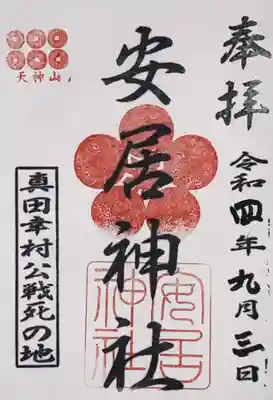 奉拝
令和四年九月三日
安居神社
安居神社
天神山
真田幸村公戦死の地